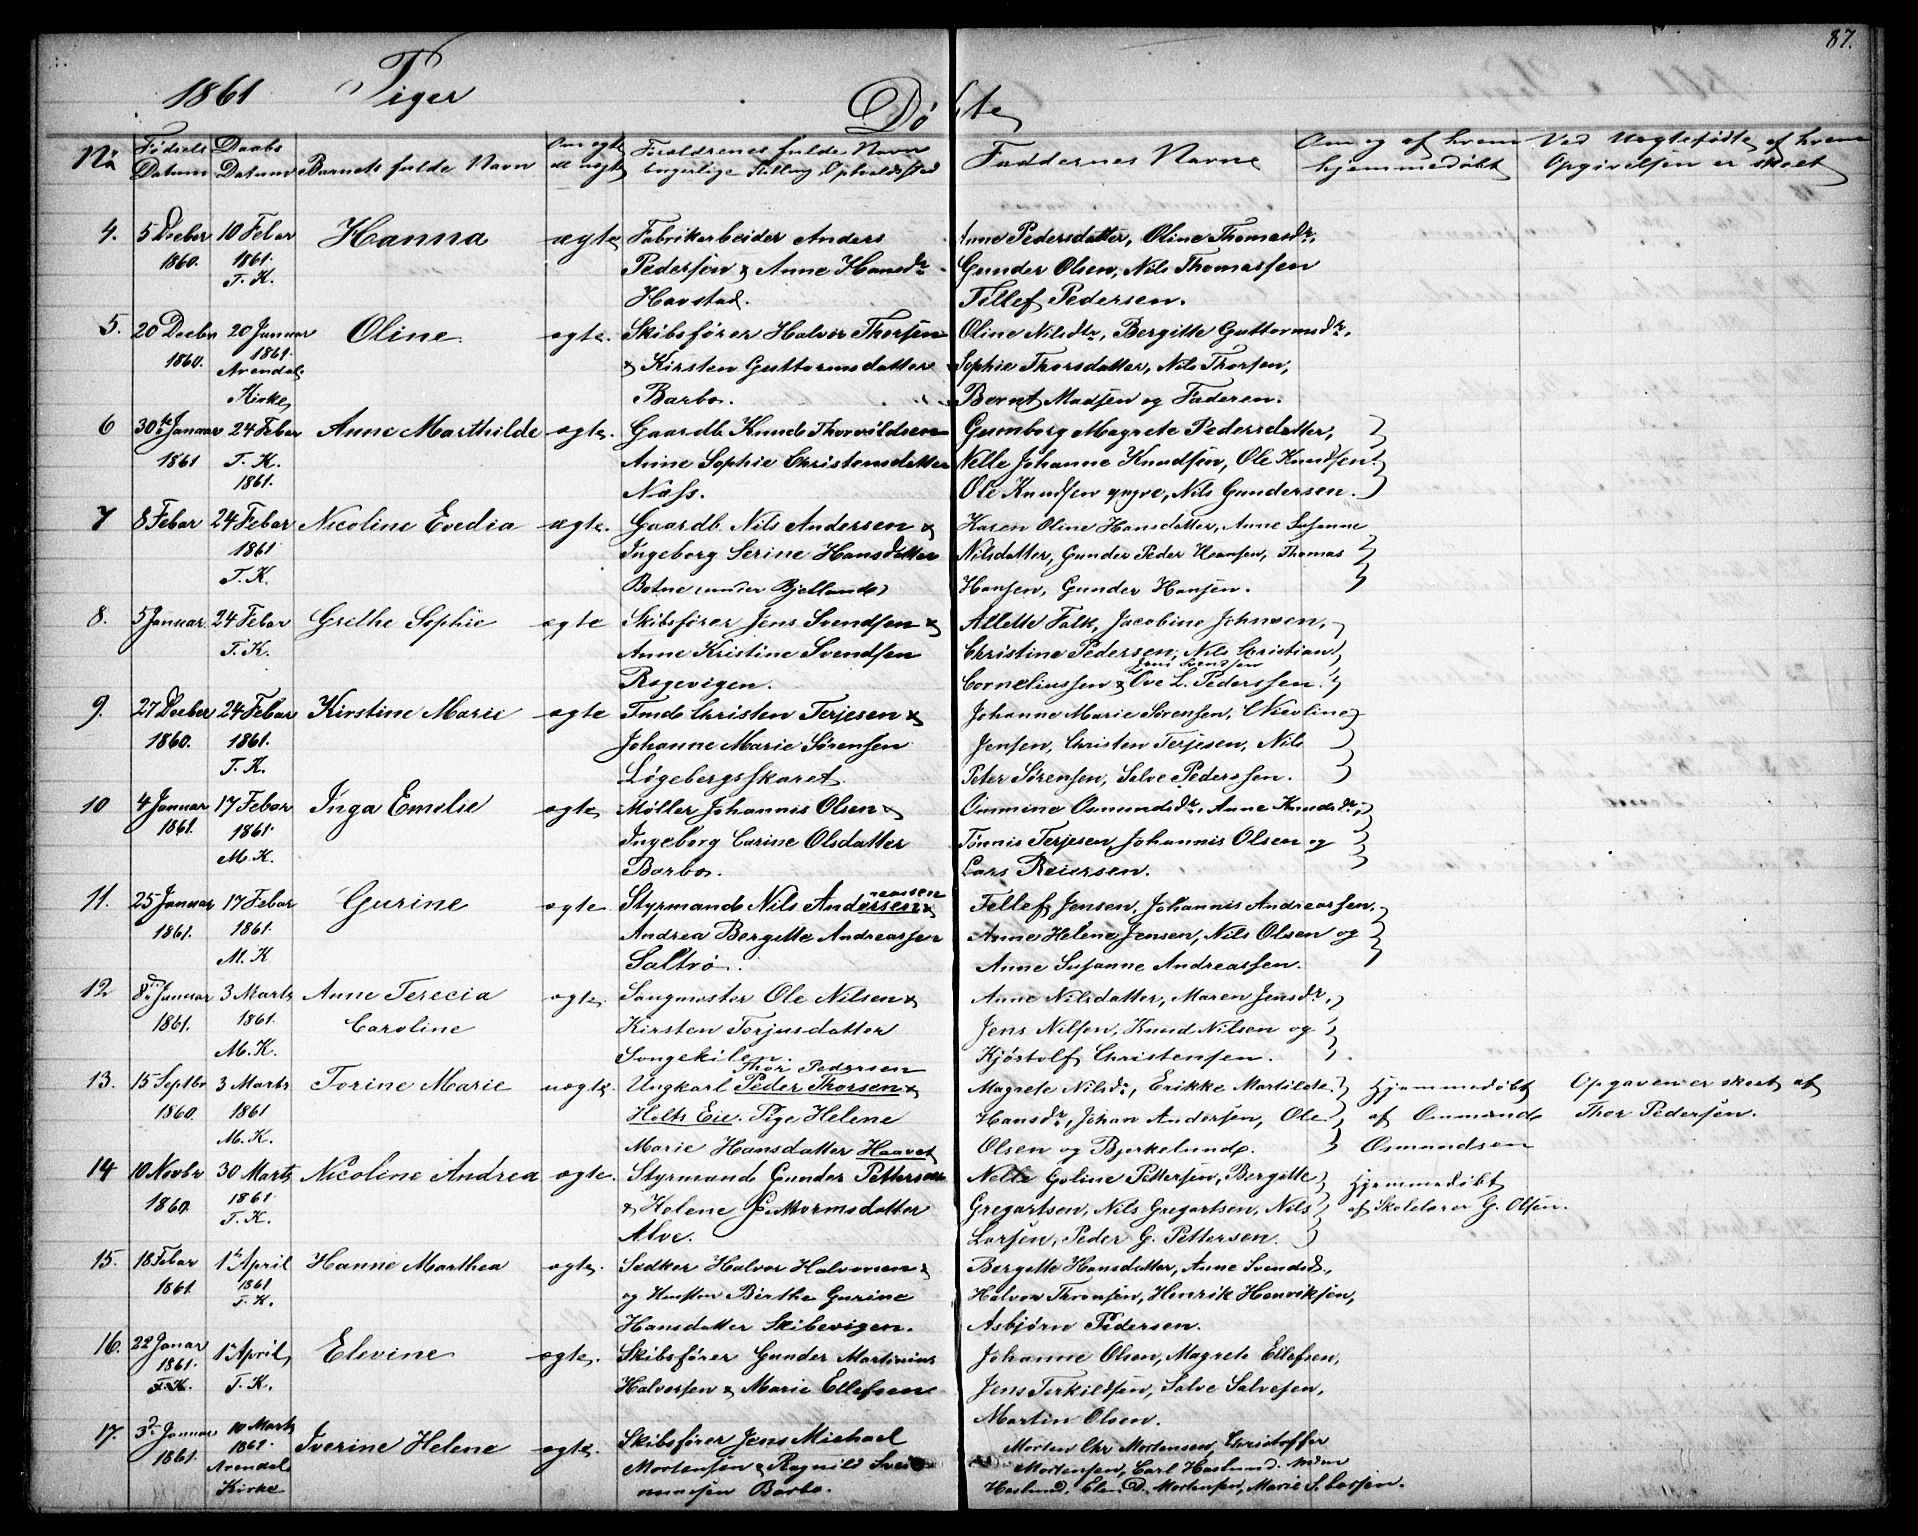 87.
1861 Piger Døbte
No Fødsels Datum Daabs Datum Barnets fulde Navn Om ægte ell. uægte Forældrenes fulde Navn borgerlige Stilling, Opholdssted Faddernes Navne Om og af hvem hjemmedøbt Ved Uægtefødte af hvem Opgivelsen er skeet
4. 5 Decber 10 Febar Hanna ægte Fabrikarbeider Anders Anne Pedersdatter, Oline Thomasdr,
1860. 1861. Pedersen & Anne Hansdr Gunder Olsen, Nils Thomassen
T. K. Havstad. Tellef Pedersen.
5. 20 Decbr 20 Januar Oline ægte. Skibsfører Halvor Thorsen Oline Nilsdtr, Bergitte Guttormsdr,
1860. 1861. Arendal & Kirsten Guttormsdatter Sophie Thorsdatter, Nils Thorsen,
Kirke Barbo. Bernt Madsen og Faderen.
6 30te Januar 24 Febar Anne Marthilde ægte. Gaardb. Knud Thorvildsen Gumborg Magrete Pedersdatter,
1861 T. K. Anne Sophie Christensdatter Nelle Johanne Knudsen, Ole Knudsen
1861. Næss. Ole Knudsen yngve, Nils Gundersen.
7 8 Febar 24 Febar Nicoline Evedia ægte. Gaardb. Nils Andersen & Karen Oline Hansdatter, Anne Susanne
1861 Ingeborg Serine Hansdatter Nilsdatter, Gunder Peder Hansen, Thomas
T. K. Botne (under Bjelland) Hansen, Gunder Hansen.
8. 5 Januar 24 Febar Grethe Sophie ægte Skibsfører Jens Svendsen & Allette Falk, Jacobine Johnsen,
T. K. Anne Kristine Svendsen Christine Pedersen, Nils Christian
Jens Svendsen
Ragevigen. Corneliussen & Ove L. Pederssen.
9. 27 Decber 24 Febar Kirstine Marie ægte Tmd. Christen Terjesen & Johanne Marie Sørensen, Nicoline
1860. 1861. Johanne Marie Sørensen Jensen, Christen Terjesen, Nils
T. K. Løgebergsskaret. Peter Sørensen, Selve Pederssen.
10 4 Januar 17 Febar Inga Emelie ægte Møller Johannis Olsen & Ommine Osmundsdr, Anne Knudsdr,
1861. 1861. Ingeborg Carine Olsdatter Tønnis Terjesen, Johannis Olsen og
M. K. Barbo. Lars Reiersen.
11. 25 Januar 17 Febar Gurine ægte Styrmand Nils Andersen & Tellef Jensen, Johannis Andreassen,
1861. 1861. Andrea Bergitte Andreassen Anne Helene Jensen, Nils Olsen og
M. K Saltrø. Anne Susanne Andreassen.
12 8de Januar 3 Marts Anne Terecia ægte Saugmester Ole Nilsen & Anne Nilsdatter, Maren Jensdr,
1861. 1861. Caroline Kirsten Torjusdatter Jens Nelsen, Knud Nilsen og
M. K. Songekilen. Kjøstolf Christensen.
Thor Pedersen
13. 15 Septbr 3 Marts Torine Marie uægte Ungkarl Peder Thorsen & Magrete Nilsdr, Erikke Martilde Hjemmedøbt Opgaven er skeet af
1860. 1861 Holts Eie. Pige Helene Hansdr, Johan Andersen, Ole af Ommund Thor Pedersen.
M. K. Marie Hansdatter Haavet Olsen og Bjerkelund. Osmundsen
14 10 Novbr 30 Marts Nicoline Andrea ægte. Styrmand Gunder Pettersen Nelle Goline Pettersen, Bergitte Hjemmedøbt
1860. 1861 & Helene Guttormsdatter Gregartsen, Nils Gregartsen, Nils af Skolelærer G. Olsen.
T. K. Alve. Larsen, Peder G. Pettersen.
15. 18 Febar 1te April Hanne Marthea ægte. Sadker Halvor Halvorsen & Bergitte Hansdatter, Anne Svendsd.,
1861. 1861 og Hustru Birthe Gurine Halvor Thronsen, Henrik Henriksen,
T. K. Hansdatter Skibevigen. Asbjørn Pedersen.
16. 22 Januar 1te April, Elevine ægte. Skibsfører Gunder Martinius Johanne Olsen, Magrete Ellefsen,
1861. T. K. T. K. Halvorsen & Marie Ellefsen Jens Terkildsen, Salve Salvesen,
Martin Olsen.
17. 3de Januar 10 Marts Iverine Helene ægte. Skibsfører Jens Michael Morten Chr Mortensen, Christoffer
1861. 1861. Arendal Mortensen & Ragnild Mortensen, Carl Haslund.
Kirke Barbo. Haslund, Elen D. Mortensen, Marie S. Larsen.